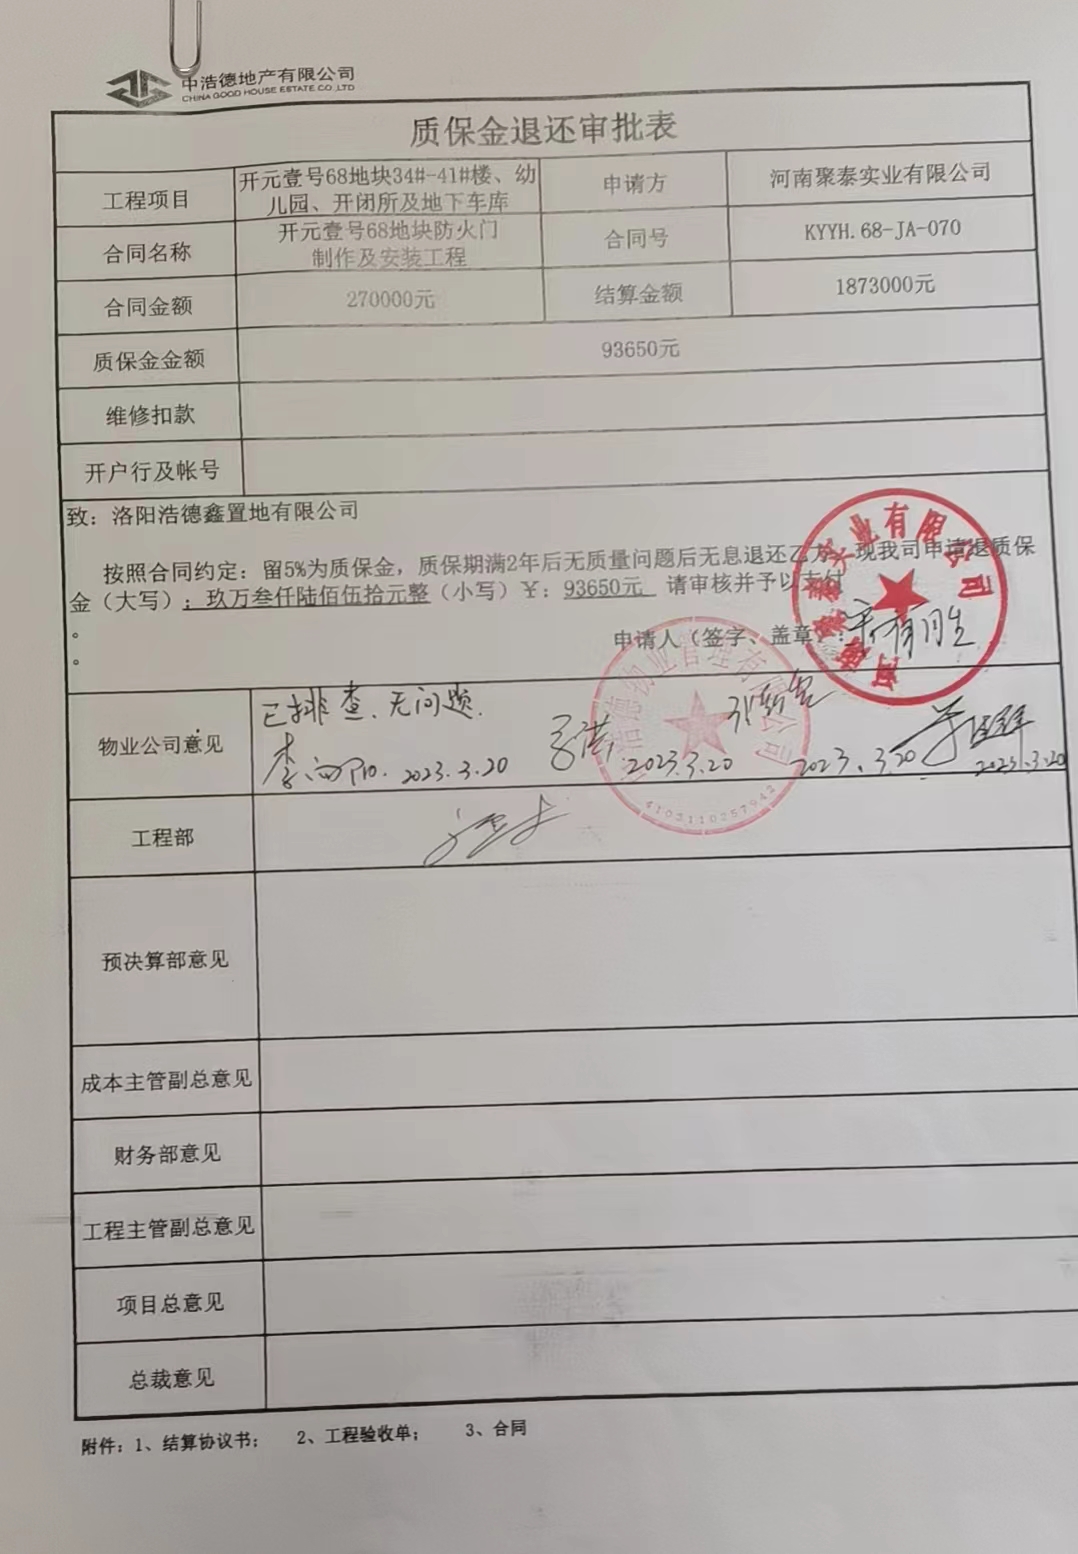 中浩德地产有限公司
CHINA GOOD HOUSE ESTATE CO.,LTD
质保金退还审批表
工程项目 开元壹号68地块34#-41#楼、幼儿园、开闭所及地下车库 申请方 河南聚泰实业有限公司
合同名称 开元壹号68地块防火门制作及安装工程 合同号 KYYH.68-JA-070
合同金额 270000元 结算金额 1873000元
质保金金额 93650元
维修扣款
开户行及帐号
致：洛阳浩德鑫置地有限公司
按照合同约定：留5%为质保金，质保期满2年后无质量问题后无息退还乙方。现我司申请退质保
金（大写）：玖万叁仟陆佰伍拾元整（小写）￥：93650元 请审核并予以支付
。
。
申请人（签字、盖章）：
物业公司意见 已排查、无问题.
2023.3.20 2023.3.20 2023.3.20 2023.3.20
物业管理有限公司
4103110257942
工程部
预决算部意见
成本主管副总意见
财务部意见
工程主管副总意见
项目总意见
总裁意见
附件：1、结算协议书； 2、工程验收单； 3、合同